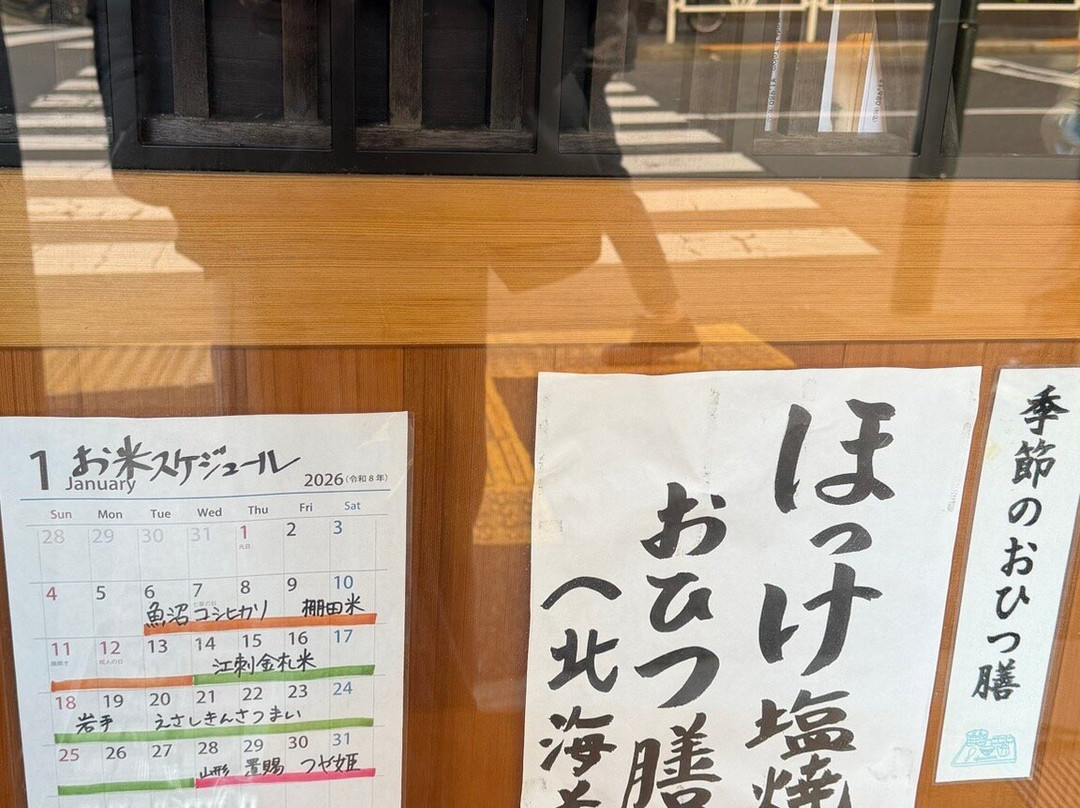 1 お米スケジュール
January
2026(令和8年)
Sun Mon Tue Wed Thu Fri Sat
28 29 30 31 1 2 3
元日
4 5 6 7 8 9 10
魚沼コシヒカリ 棚田米
11 12 13 14 15 16 17
成人の日
江刺金札米
18 19 20 21 22 23 24
岩手 えさしきんさつまい
25 26 27 28 29 30 31
山形 置賜 つや姫
ほっけ塩焼
おひつ膳
へ北海
季節のおひつ膳